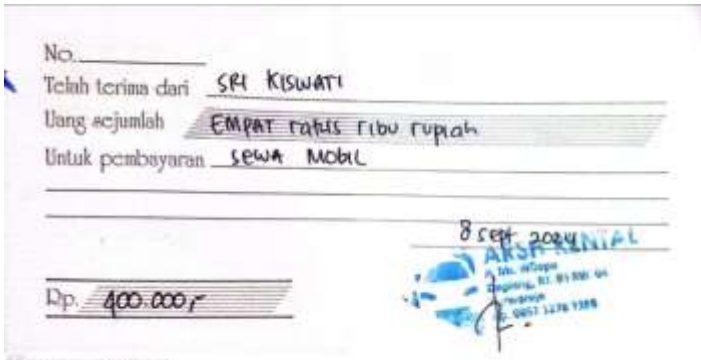 No.
Telah terima dari SRI KISWATI
Uang sejumlah EMPAT ratus ribu rupiah
Untuk pembayaran SEWA MOBIL
8 sept 2024
RENTAL
Rp. 400.000,-